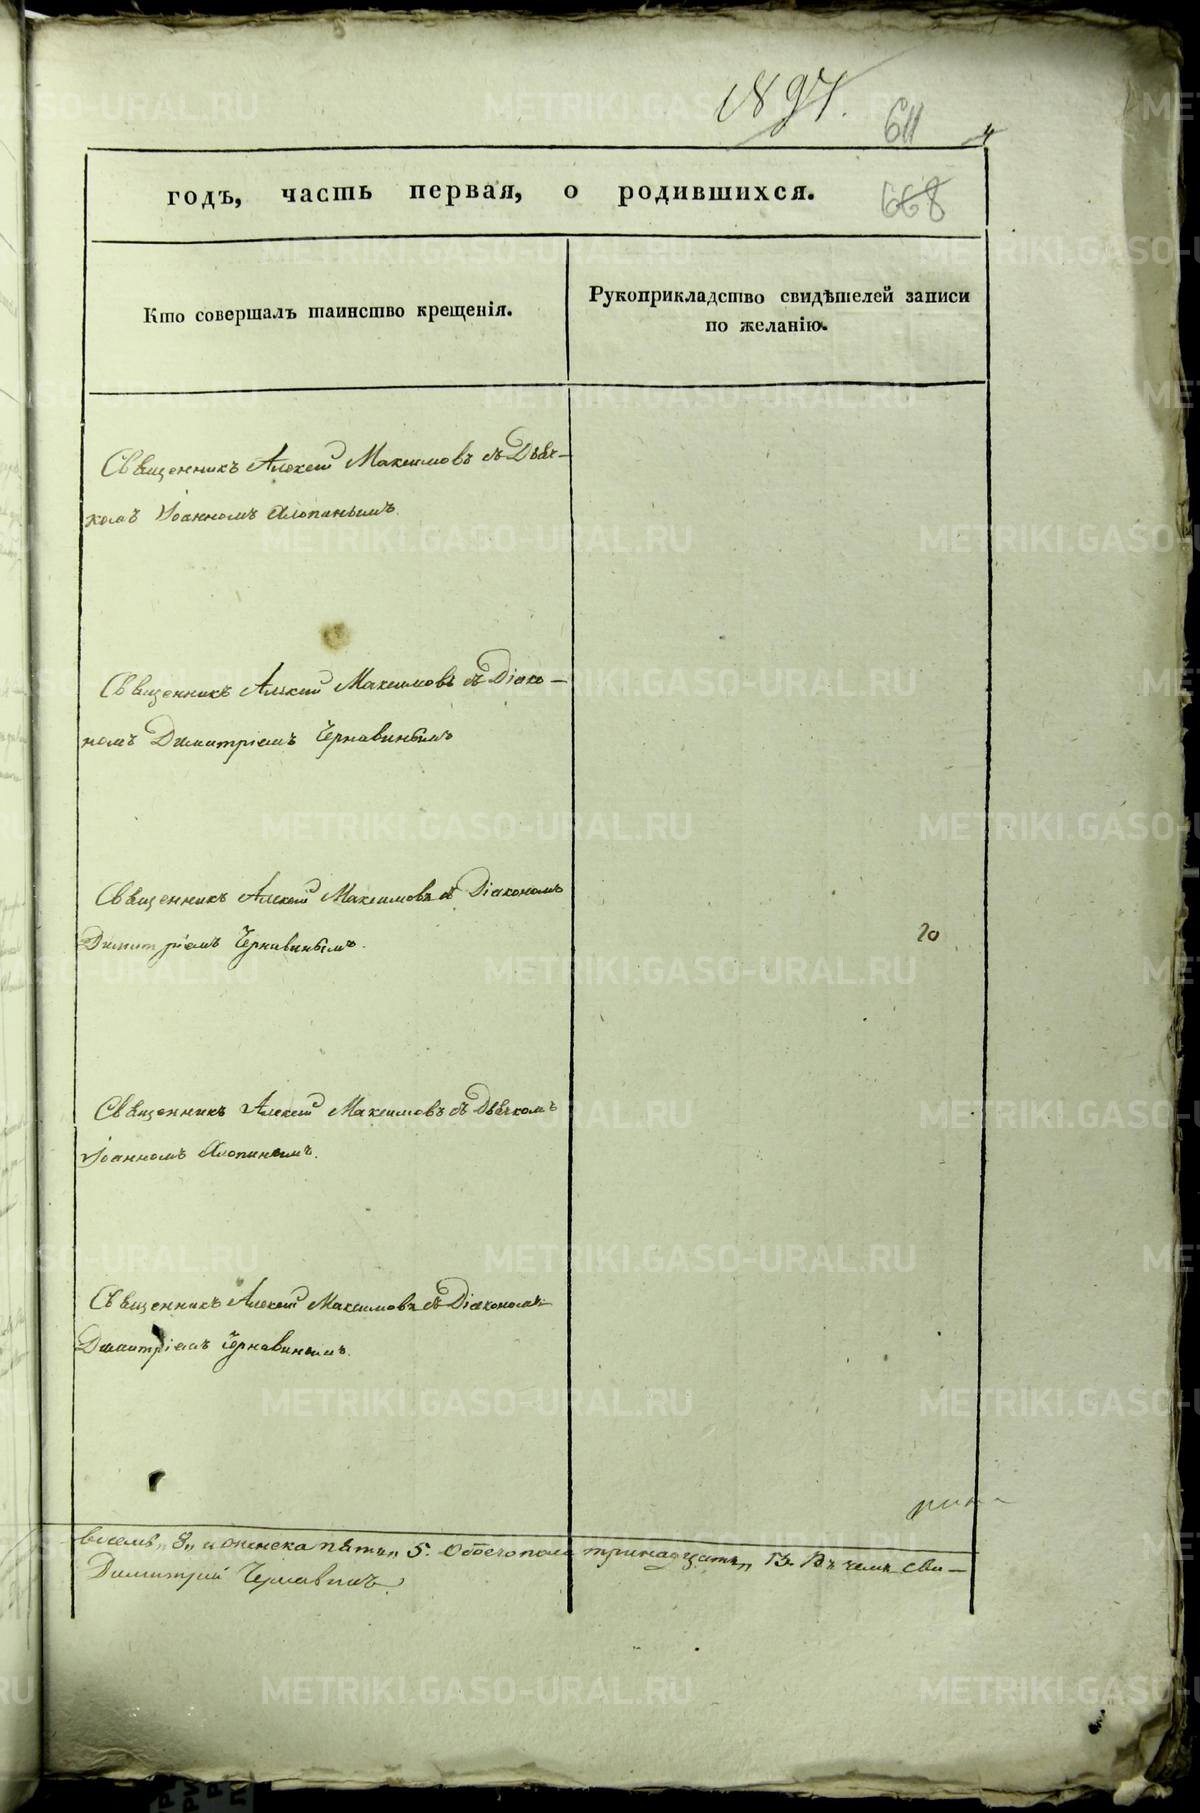 № 97.
611
668
годъ, часть первая, о родившихся.
Кто совершалъ таинство крещенія.
Рукоприкладство свидѣтелей записи
по желанію.
Священникъ Алексій Максимовъ съ Дьяч-
комъ Іоанномъ Аѳопиньимъ.
Священникъ Алексій Максимовъ съ Діако-
номъ Димитріемъ Чернавинымъ
Священникъ Алексій Максимовъ съ Діакономъ
Димитріемъ Чернавинымъ.
20
Священникъ Алексій Максимовъ съ Дьячкомъ
Іоанномъ
Священникъ Алексій Максимовъ съ Діакономъ
Димитріемъ Чернавинымъ.
восемь „8„ и женска пять „5. Обоего пола тринадцать „13. Въ чемъ сви-
Димитрій Чернавинъ.
METRIKI.GASO-URAL.RU